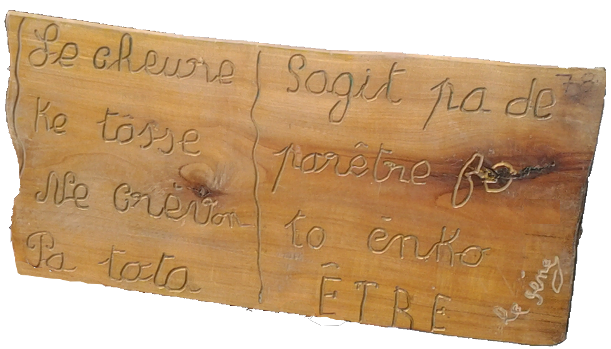 Le chevre
Ke tôsse
Ne crèvon
Pa tota
Sagit pa de
parêtre fo
to ênko
ÊTRE
78